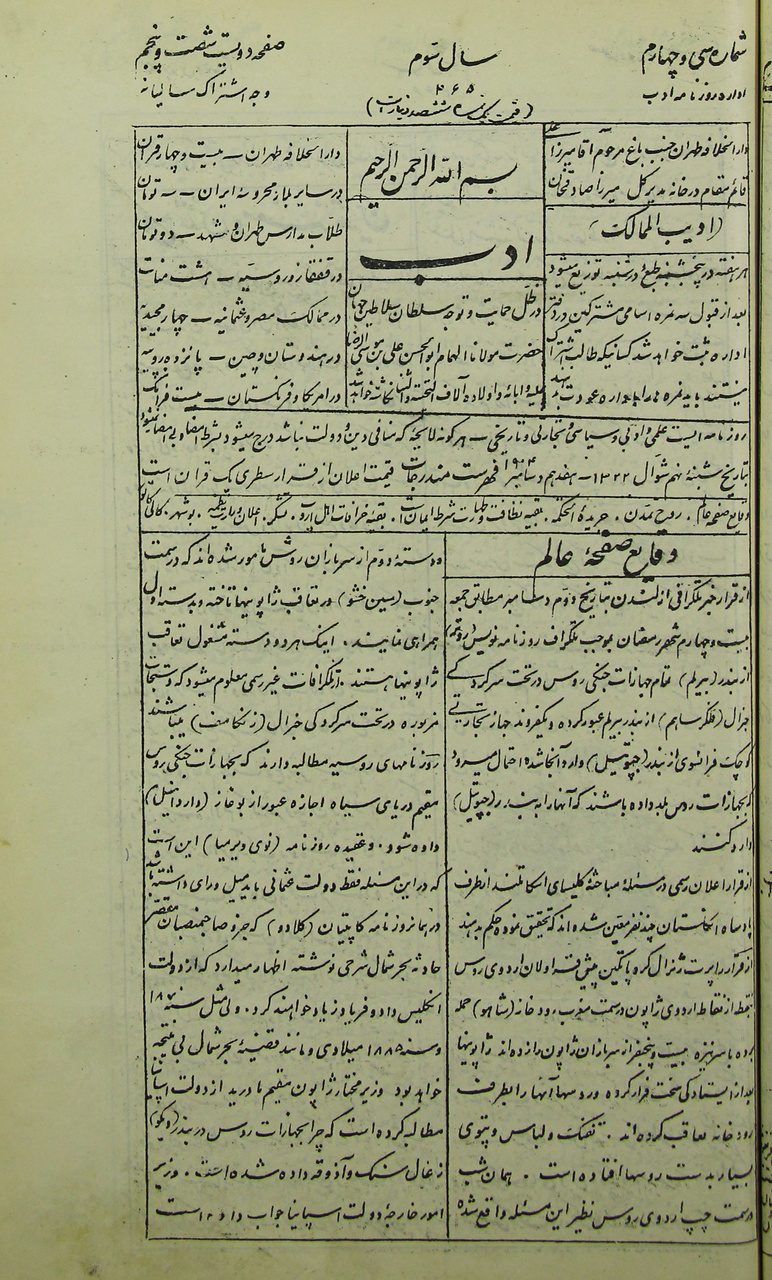 شماره سی و چهارم
سال سوم
صفحه دویست شصت و پنجم
اداره روزنامه ادب
۲۶۵
وجه اشتراک سالیانه
(قیمت یک نمره ششصد دینار است)
دارالخلافه طهران جنب باغ مرحوم آقا میرزا
قائم مقام در خانه مدیر کل میرزا صادقخان
(ادیب الممالک)
هر هفته در پنجشنبه طبع و در شنبه توزیع میشود
بعد از قبول سه نمره اسامی مشترکین در دفتر
اداره ثبت خواهد شد کسانیکه طالب اشتراک
نیستند باید نمره ها را باداره عودت بدهند
بسم الله الرحمن الرحیم
ادب
در ظل حمایت و توجه سلطان سلاطین جهان
حضرت مولانا الهمام ابوالحسن علی بن موسی الرضا
علیه و ابائه و اولاده آلاف التحیة والثنا
دارالخلافه طهران – بیست و چهار قران
در سایر بلاد محروسه ایران – سه تومان
طلاب مدارس طهران و مشهد – دو تومان
در قفقاز و روسیه – هشت منات
در ممالک مصر و عثمانیه – چهار مجیدیه
در هندوستان و چین – پانزده روپیه
در امریکا و فرنگستان – بیست فرانک
روزنامه ایست علمی و ادبی و سیاسی و تجارتی و تاریخی – هر گونه لایحه که منافی دین و دولت نباشد درج میشود بشرط امضا و بی امضا
بتاریخ شنبه نهم شوال ۱۳۲۲ – هفدهم دسامبر ۱۹۰۴ فهرست مندرجات قیمت اعلان از قرار سطری یک قران است
وقایع صفحه عالم . روح تمدن . جریدة الحکمه . بقیه نظافت و طهارت شرط ایمان است . بقیه خرافات اهل اروپ . تشکر . اعلان
وقایع صفحهٔ عالم
از قرار خبر تلگرافی از لندن بتاریخ دوم دسامبر مطابق جمعه
بیست و چهارم شهر رمضان بموجب تلگراف روزنامه نویس (روتر)
از بندر (بیرلم) تمام جهازات جنگی روس در تحت سرکردگی
جنرال (فلکرساهم) از بندر بیرلم عبور کرده و یکفروند جهاز تجارتی
کوچک فرانسوی از بندر (جیبوتیل) وارد آنجا شده احتمال میرود
که بجهازات روس بلد داده باشند که آنها را به بندر (جیبوتیل)
وارد کنند
از قرار اعلان رسمی در مسئله مباحثهٔ کلیسای اسکاتلند از طرف
پادشاه انگلستان چند نفر معین شده اند که تحقیق نموده حکم بدهند
از قرار راپرت ژنرال کروپاتکین پیش قراولان اردوی روس
از نقاط اردوی ژاپون در سمت مغرب رودخانه (شاهو) حمله
برده با سرنیزه بیست و پنجنفر از سربازان ژاپون را زده اند ژاپونیها
بعد از ایستادگی سخت فرار کرده و روسها آنها را بطرف
رودخانه تعاقب کرده اند . تفنک و لباس و پتوی
بسیار بدست روسها افتاده است . همان شب
در سمت چپ اردوی روس نظیر این مسئله واقع شده
و دستهٔ دوم از سربازان روس مامور شده اند که در سمت
جنوب (سین خنتو) در تعاقب ژاپونیها تاخته و بدسته اول
همراهی نمایند . اینک هر دو دسته مشغول تعاقب
ژاپونیها هستند . از تلگرافات غیر رسمی معلوم میشود که دستجات
مزبوره در تحت سرکردگی جنرال (زنکامف) میباشند
روزنامهای روسیه مطالبه دارند که بجهازات جنگی روس
مقیم دریای سیاه اجازه عبور از بوغاز (داردانیل)
داده شود . و عقیده روزنامه (نوی ویرمیا) این است
که در این مسئله فقط دولت عثمانی باید میل و رای داشته باشد
در همان روزنامه کاپیتان (کلادو) که جزو صاحبمنصبان مقصر
حادثه بحر شمال شرحی نوشته اظهار میدارد که از دولت
انگلیس داد و فریاد زیاد خواهند کرد . ولی مثل سنه ۱۸۷
و سنه ۱۸۸۵ میلادی و مانند قضیهٔ بحر شمال بی نتیجه
خواهد بود وزیر مختار ژاپون مقیم مادرید از دولت اسپانیا
مطالبه کرده است که چرا بجهازات روس در بندر (ویکو)
زغال سنک و آذوقه داده شده است . وزیر
امور خارجهٔ دولت اسپانیا جواب داده است